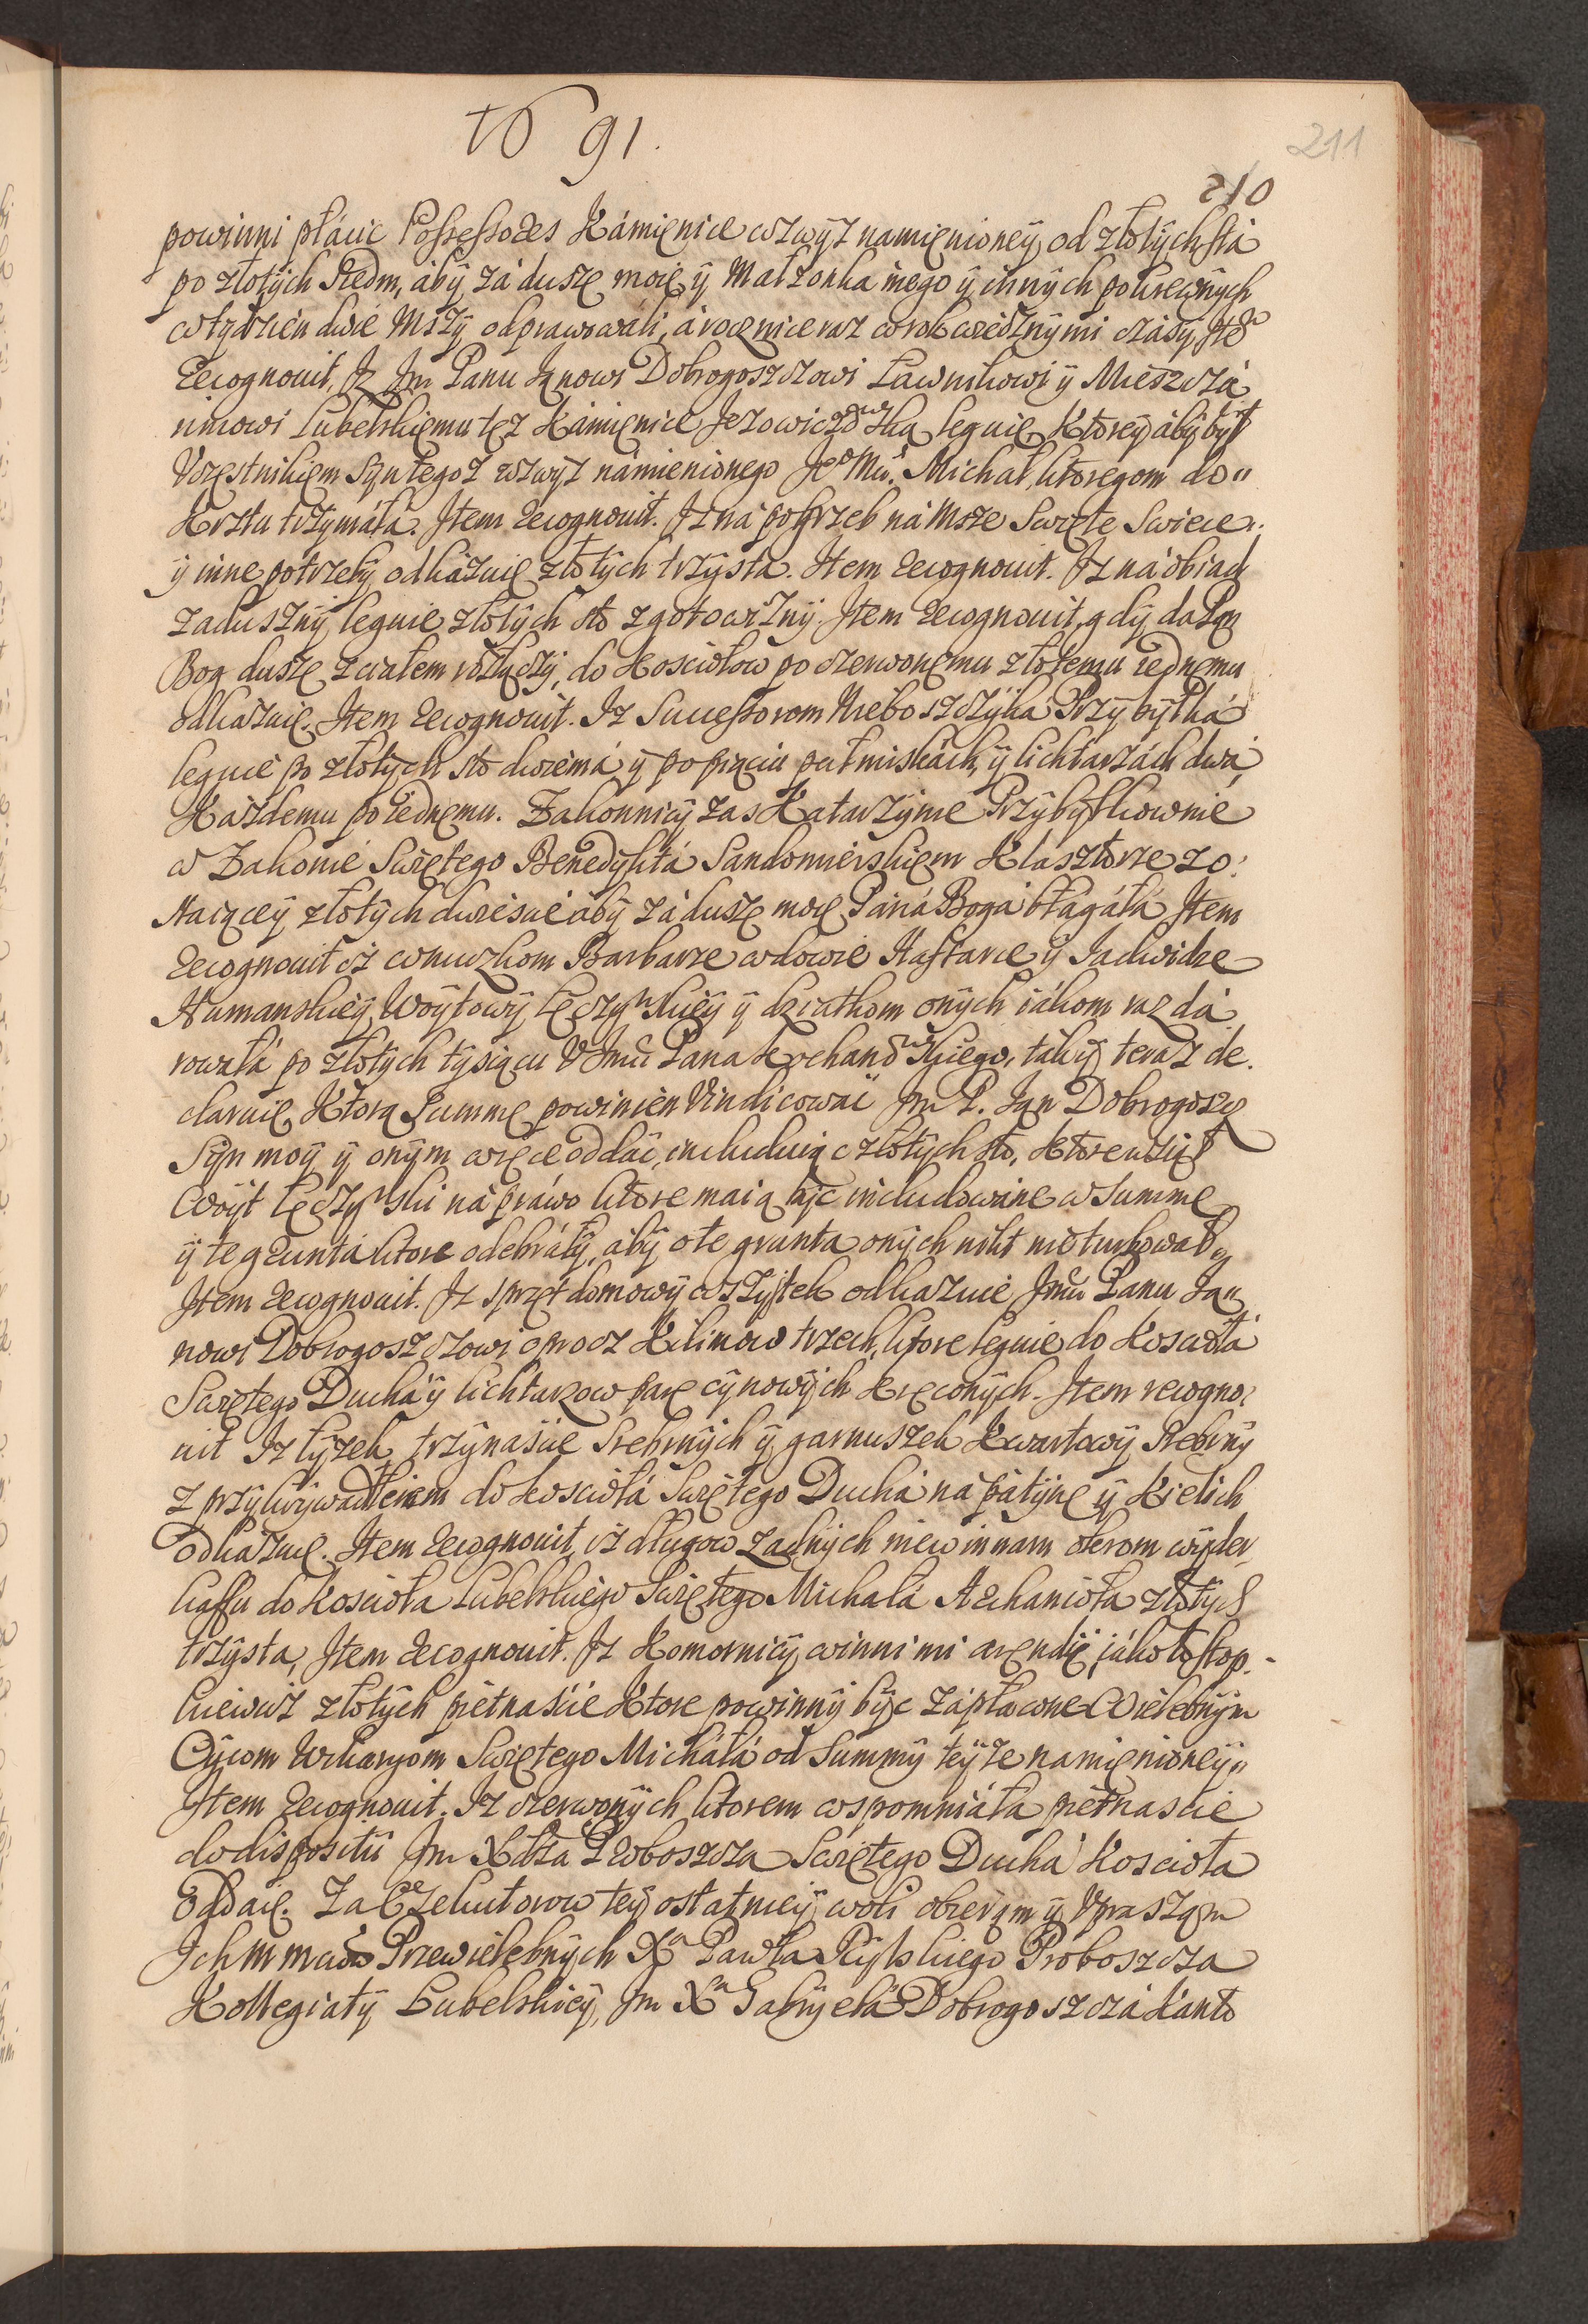 1691.
211
210
powinni płácic Possessores Kámięnice wzwyż namięnioneÿ, od złotÿch stá
po złotÿch Siedm, ábÿ zá duszę moię ÿ Małżonka mego ÿ innÿch pokrewnÿch
w tÿdzien dwie Mszÿ odprawowáli, á rocznice raz w rok wiecznÿmi czásÿ, Ite
Recognouit, Iz Im Panu Ianowi Dobrogoszczowi Ławnikowi ÿ Mieszczá
ninowi Lubelskięmu tęż Kámięnice Jezowiczowską leguię, Ktoreÿ ábÿ był
Vczęstnikiem Sÿn tegoż wzwyż námienionego Jeo Mci. Michał, ktoregom do"
Krztu trzÿmáłá. Item Recognouit. Iz ná pogrzeb ná Msze Swięte Swiece
ÿ inne potrzebÿ odkázuię złotÿch trzÿsta. Item Recognouit. Iz ná obiad
zadusznÿ leguię złotÿch sto z gotowiznÿ. Item Recognouit, gdÿ da Pan
Bog duszę z ciałem rozłączÿ, do Kosciołow po czerwonęmu złotemu iednęmu
odkazuię. Item Recognouit. Iz Successorom Niebosczÿka Przÿbÿłká
leguię po złotÿch sto dwiemá ÿ po pięciu pułmiskách, ÿ lichtarzách dwá,
Káżdemu po iednęmu. Zakonnicÿ zas Katarzÿnie Przÿbÿłkownie
w Zakonie Swiętego Benedÿktá Sandomierskięm Klasztorze zo:
staiąceÿ złotÿch dwiescie ábÿ zá duszę moię Páná Bogá błagáłá Item
Recognouit iż wnuczkom Barbarze wdowie Haftarce ÿ Iadwidze
Numanskieÿ Woÿtowÿ Łęczÿnskieÿ ÿ dziatkom onÿch iákom raz dá
rowałá po złotÿch tÿsiącu V Jmci Pana Kochanowskiego, tak ÿ teraz de.
claruię Ktorą Summę powinien Vindicowáć Jm P. Ian Dobrogoszcz
Sÿn moÿ ÿ onÿm więce oddáć, includuiąc złotÿch sto, ktore wziął
Woÿt Łęczÿnski ná práwo ktore maią bÿc includowane w Summę
ÿ te grunta ktore odebráłÿ, ábÿ o te grunta onÿch nikt nie turbował
Item Recognouit. Iz sprzęt domowÿ wszÿstek odkazuię Jmci Panu Ian
nowi Dobrogoszczowi oprocz Kilimow trzech, ktore leguię do Kosciołá
Swiętego Duchá ÿ lichtarzow parę cÿnowÿch kręconÿch. Item recogno:
uit Iz łÿżek trzÿnaście Srebrnÿch ÿ garnuszek Kwartowÿ Srebrnÿ
z przÿkrÿwadłeiem do kosciołá Swiętego Duchá ná pátÿnę ÿ Kielich
odkazuię. Item Recognouit, iż długow żadnÿch niewinnam okrom wÿder
kaffu do Kosciołá Lubelskiego Swiętego Michałá Archaniołá złotÿch
trzÿsta, Item Recognouit. Iz Komornicÿ winni mi arędÿ, iáko to Stop
kiewicz złotÿch piętnaście Ktore powinnÿ bÿc zápłacone Wielebnÿm
Oÿcom Wikaryom Swiętego Micháłá od Summÿ teÿże namięnioneÿ"
Item Recognouit. Iz czerwonÿch ktorem wspomniáłá piętnascie
do dispositii Jm Xdza Proboszcza Swiętego Duchá Kosciołá
Oddaię. Za Exekutorow teÿ ostatnieÿ woli obieram ÿ Vpraszam
Ich Mmciow Przewielebnÿch Xa Pawła Proboszcza
Kollegiatÿ Lubelskieÿ, Jm Xa Gabrÿelá Dobrogoszczá Kánto